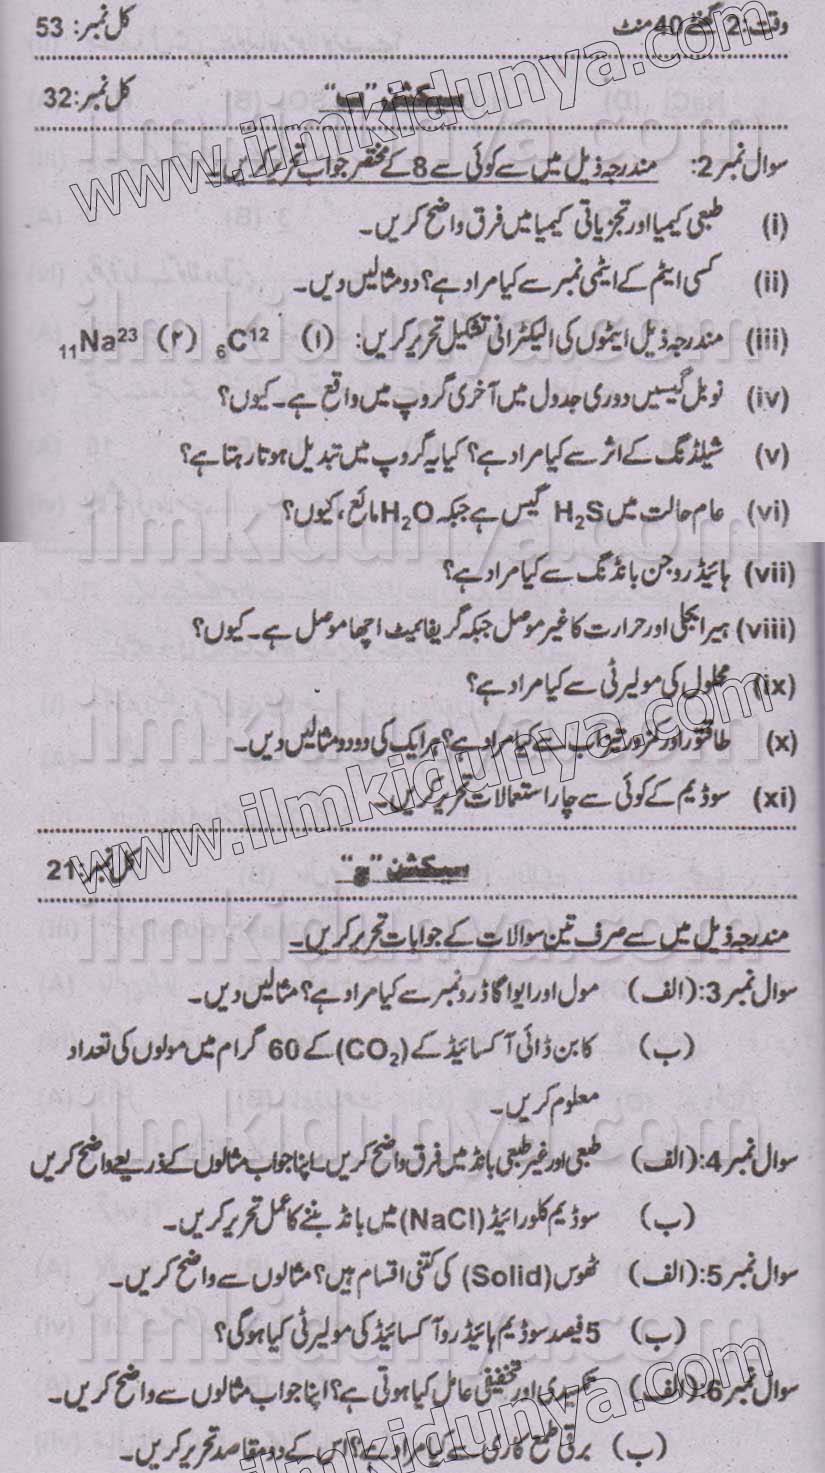 وقت: 2 گھنٹے 40 منٹ کل نمبر: 53
سیکشن "ب" کل نمبر: 32
سوال نمبر 2: مندرجہ ذیل میں سے کوئی سے 8 کے مختصر جواب تحریر کریں۔
(i) طبعی کیمیا اور تجزیاتی کیمیا میں فرق واضح کریں۔
(ii) کسی ایٹم کے ایٹمی نمبر سے کیا مراد ہے؟ دو مثالیں دیں۔
(iii) مندرجہ ذیل ایٹموں کی الیکٹرانی تشکیل تحریر کریں: (۱) ₆C¹² (۲) ₁₁Na²³
(iv) نوبل گیسیں دوری جدول میں آخری گروپ میں واقع ہے۔ کیوں؟
(v) شیلڈنگ کے اثر سے کیا مراد ہے؟ کیا یہ گروپ میں تبدیل ہوتا رہتا ہے؟
(vi) عام حالت میں H₂S گیس ہے جبکہ H₂O مائع، کیوں؟
(vii) ہائیڈروجن بانڈنگ سے کیا مراد ہے؟
(viii) ہیرا بجلی اور حرارت کا غیر موصل جبکہ گریفائیٹ اچھا موصل ہے۔ کیوں؟
(ix) محلول کی مولیرٹی سے کیا مراد ہے؟
(x) طاقتور اور کمزور تیزاب سے کیا مراد ہے؟ ہر ایک کی دو دو مثالیں دیں۔
(xi) سوڈیم کے کوئی سے چار استعمالات تحریر کریں۔
سیکشن "ج" کل نمبر: 21
مندرجہ ذیل میں سے صرف تین سوالات کے جوابات تحریر کریں۔
سوال نمبر 3: (الف) مول اور ایواگاڈرو نمبر سے کیا مراد ہے؟ مثالیں دیں۔
(ب) کابن ڈائی آکسائیڈ کے (CO₂) کے 60 گرام میں مولوں کی تعداد
معلوم کریں۔
سوال نمبر 4: (الف) طبعی اور غیر طبعی بانڈ میں فرق واضح کریں۔ اپنا جواب مثالوں کے ذریعے واضح کریں
(ب) سوڈیم کلورائیڈ (NaCl) میں بانڈ بننے کا عمل تحریر کریں۔
سوال نمبر 5: (الف) ٹھوس (Solid) کی کتنی اقسام ہیں؟ مثالوں سے واضح کریں۔
(ب) 5 فیصد سوڈیم ہائیڈرو آکسائیڈ کی مولیرٹی کیا ہوگی؟
سوال نمبر 6: (الف) تکسیدی اور تخفیفی عامل کیا ہوتی ہے؟ اپنا جواب مثالوں سے واضح کریں۔
(ب) برقی ملمع کاری سے کیا مراد ہے؟ اس کے دو مقاصد تحریر کریں۔
www.ilmkidunya.com
ilmkidunya.com
ilmkidunya.com
ilmkidunya.com
www.ilmkidunya.com
ilmkidunya.com
ilmkidunya.com
ilmkidunya.com
ilmkidunya.com
ilmkidunya.com